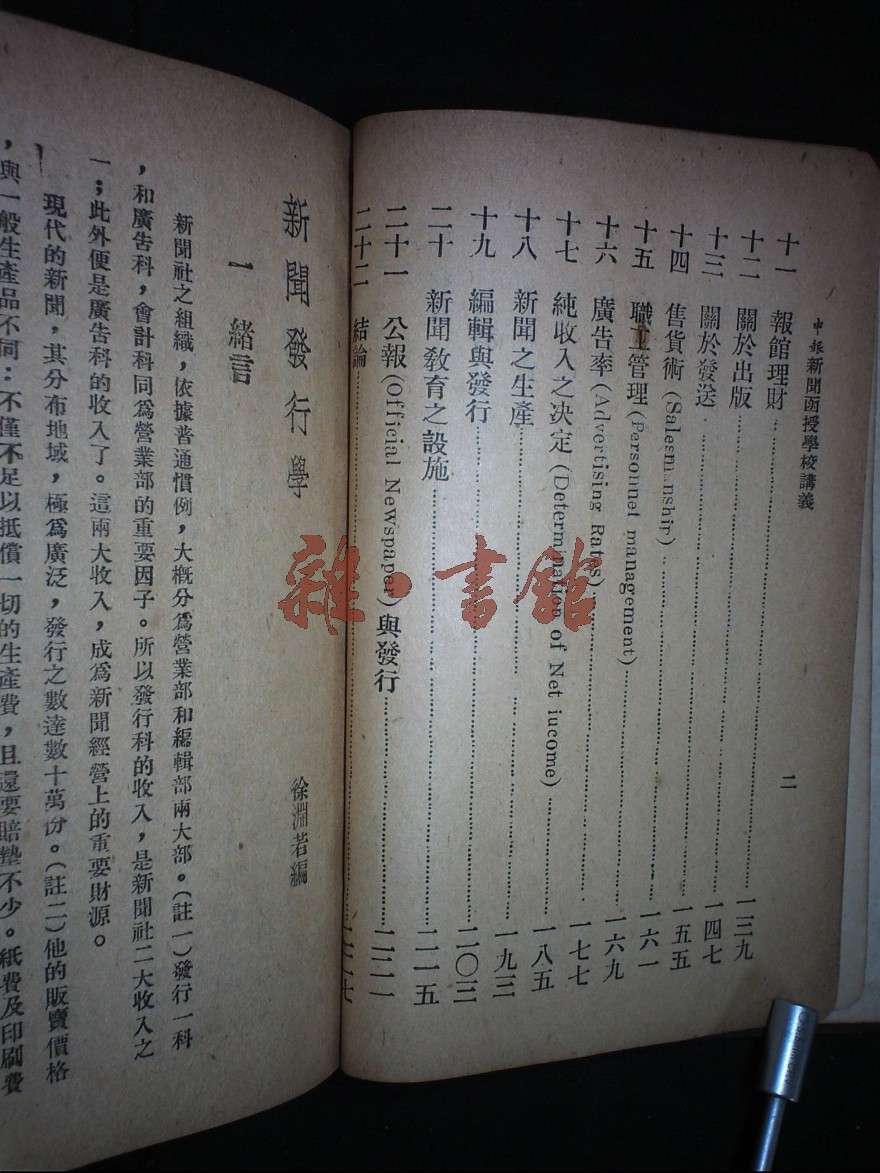 申報新聞函授學校講義
二
十一 報館理財 一三九
十二 關於出版 一四七
十三 關於發送 一五五
十四 售貨術(Salesm nshir) 一六一
十五 職工管理(Personnet management) 一六九
十六 廣告率(Advertising Rates) 一七七
十七 純收入之決定(Determination of Net iucome) 一八五
十八 新聞之生產 一九三
十九 編輯與發行 二〇三
二十 新聞教育之設施 二一五
二十一 公報(Official Newspaper)與發行 二二一
二十二 結論 二二七
新聞發行學
徐淵若編
一 緒言
新聞社之組織，依據普通慣例，大概分爲營業部和編輯部兩大部。(註一)發行一科
，和廣告科，會計科同爲營業部的重要因子。所以發行科的收入，是新聞社二大收入之
一；此外便是廣告科的收入了。這兩大收入，成爲新聞經營上的重要財源。
現代的新聞，其分布地域，極爲廣泛，發行之數達數十萬份。(註二)他的販賣價格
，與一般生產品不同：不僅不足以抵償一切的生產費，且還要賠墊不少。紙費及印刷費
雜·書館